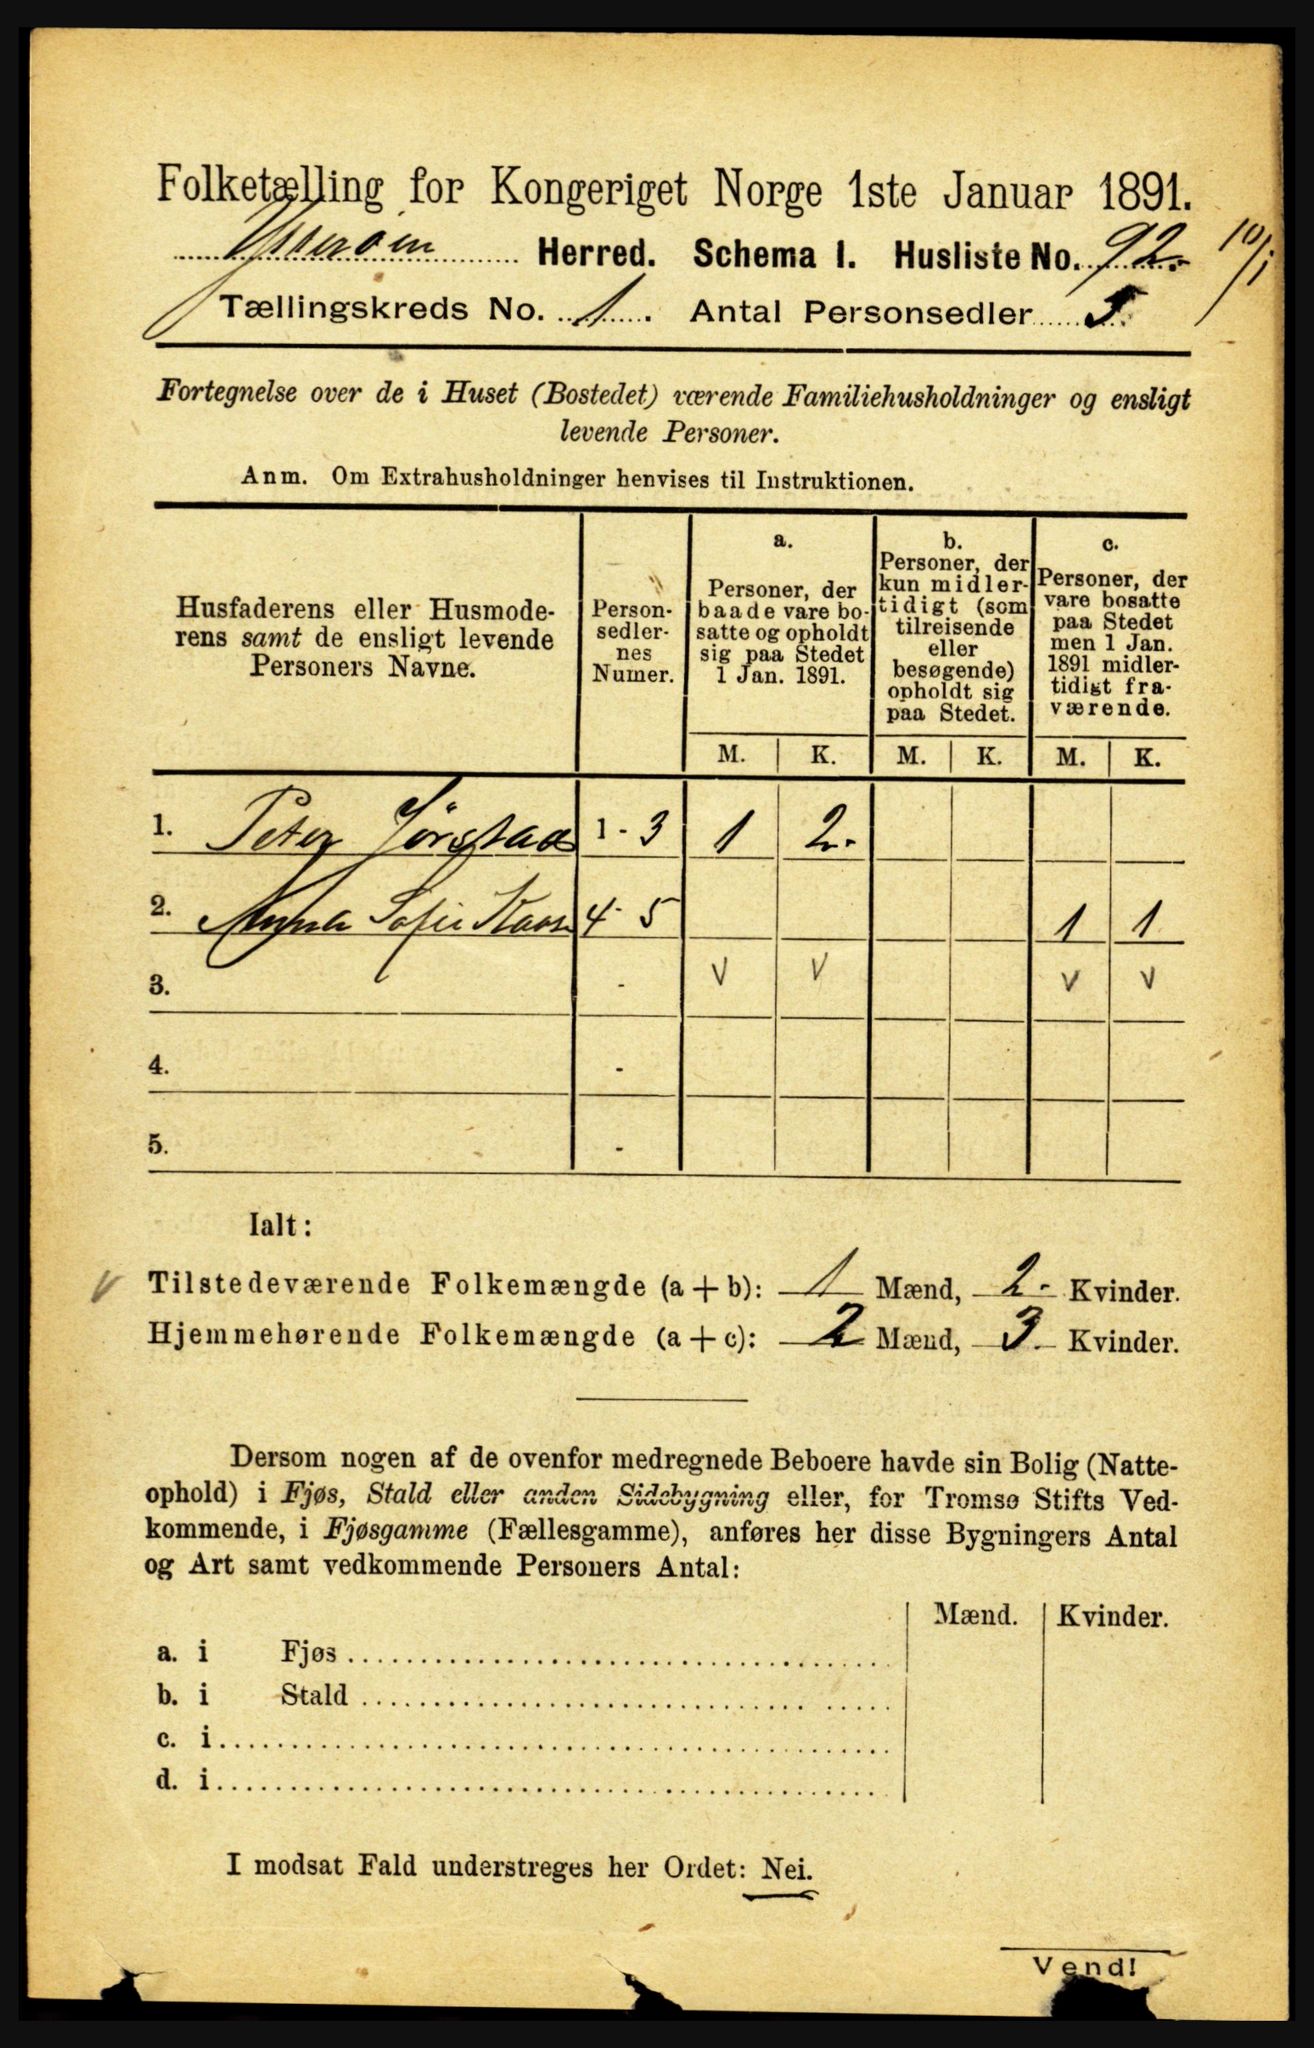 Folketælling for Kongeriget Norge 1ste Januar 1891.
Ytterøien Herred. Schema I. Husliste No. 92.
10/1
Tællingskreds No. 1. Antal Personsedler 5.
Fortegnelse over de i Huset (Bostedet) værende Familiehusholdninger og ensligt
levende Personer.
Anm. Om Extrahusholdninger henvises til Instruktionen.
Husfaderens eller Husmode-
rens samt de ensligt levende
Personers Navne.
Person-
sedler-
nes
Numer.
a.
Personer, der
baade vare bo-
satte og opholdt
sig paa Stedet
1 Jan. 1891.
b.
Personer, der
kun midler-
tidigt (som
tilreisende
eller
besøgende)
opholdt sig
paa Stedet.
c.
Personer, der
vare bosatte
paa Stedet
men 1 Jan.
1891 midler-
tidigt fra-
værende.
M. K. M. K. M. K.
1. Peter Jørstad 1 - 3 1 2.
2. Sofie 4 - 5 1 1
3. - V V V V
4. -
5. -
Ialt:
V Tilstedeværende Folkemængde (a + b): 1 Mænd, 2 Kvinder.
Hjemmehørende Folkemængde (a + c): 2 Mænd, 3 Kvinder.
Dersom nogen af de ovenfor medregnede Beboere havde sin Bolig (Natte-
ophold) i Fjøs, Stald eller anden Sidebygning eller, for Tromsø Stifts Ved-
kommende, i Fjøsgamme (Fællesgamme), anføres her disse Bygningers Antal
og Art samt vedkommende Personers Antal:
Mænd. Kvinder.
a. i Fjøs
b. i Stald
c. i
d. i
I modsat Fald understreges her Ordet: Nei.
Vend!